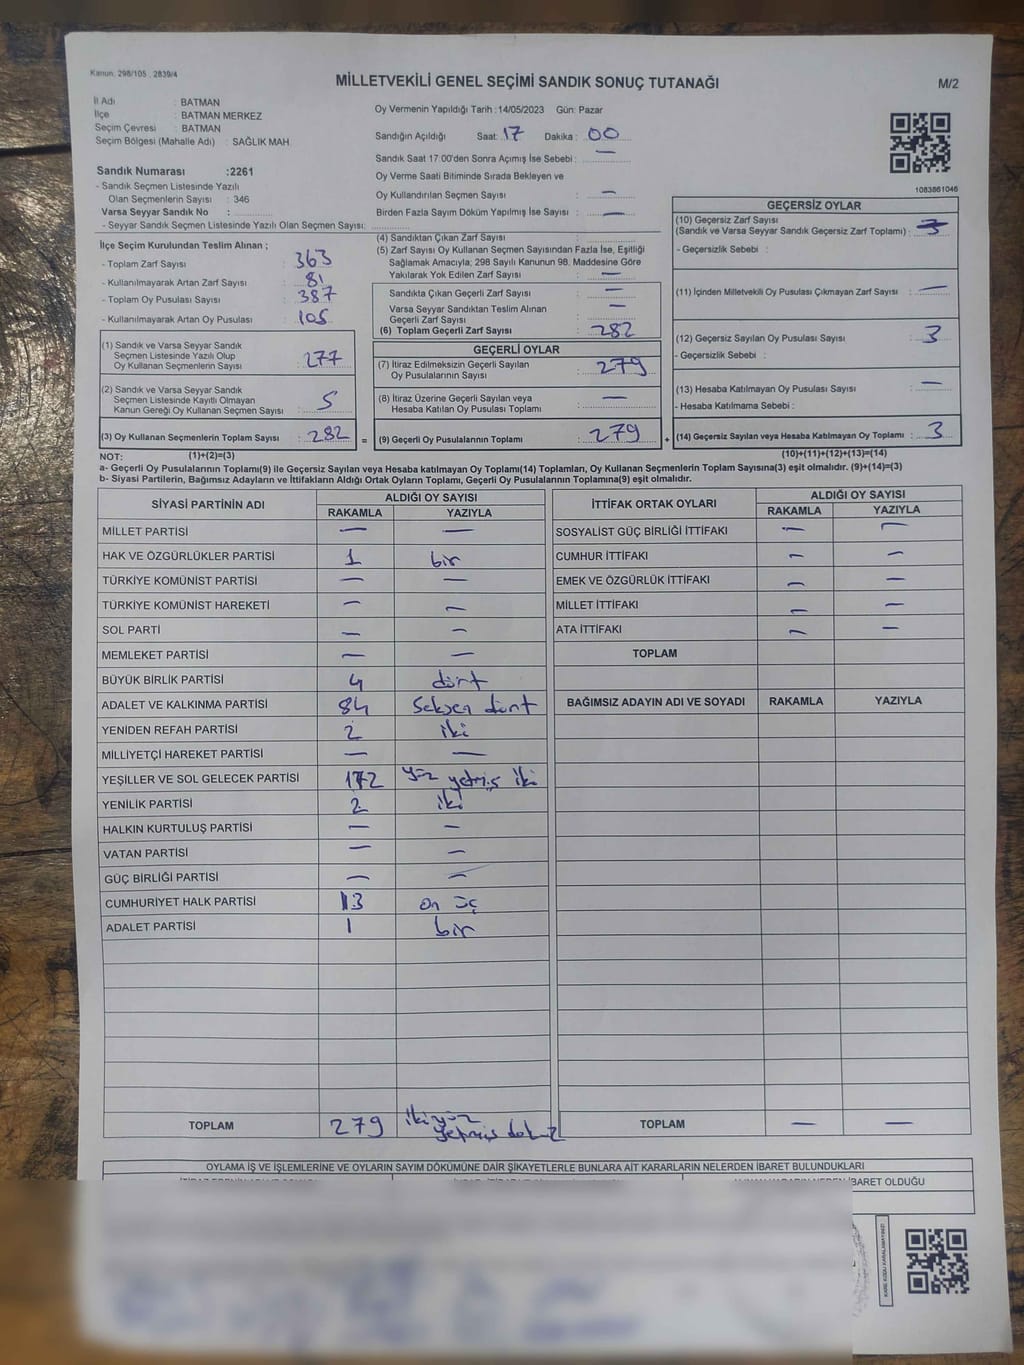 Kanun: 298/105 , 2839/4
MİLLETVEKİLİ GENEL SEÇİMİ SANDIK SONUÇ TUTANAĞI
M/2
İl Adı : BATMAN
İlçe : BATMAN MERKEZ
Seçim Çevresi : BATMAN
Seçim Bölgesi (Mahalle Adı) : SAĞLIK MAH.
Oy Vermenin Yapıldığı Tarih : 14/05/2023 Gün: Pazar
Sandığın Açıldığı Saat: 17 Dakika : 00
Sandık Saat 17.00'den Sonra Açımış İse Sebebi : —
Oy Verme Saati Bitiminde Sırada Bekleyen ve
Oy Kullandırılan Seçmen Sayısı : —
Birden Fazla Sayım Döküm Yapılmış İse Sayısı : —
Sandık Numarası :2261
- Sandık Seçmen Listesinde Yazılı
Olan Seçmenlerin Sayısı : 346
Varsa Seyyar Sandık No :
- Seyyar Sandık Seçmen Listesinde Yazılı Olan Seçmen Sayısı:
1083861046
İlçe Seçim Kurulundan Teslim Alınan ;
- Toplam Zarf Sayısı : 363
- Kullanılmayarak Artan Zarf Sayısı : 81
- Toplam Oy Pusulası Sayısı : 387
- Kullanılmayarak Artan Oy Pusulası : 105
(1) Sandık ve Varsa Seyyar Sandık
Seçmen Listesinde Yazılı Olup
Oy Kullanan Seçmenlerin Sayısı : 277
(2) Sandık ve Varsa Seyyar Sandık
Seçmen Listesinde Kayıtlı Olmayan
Kanun Gereği Oy Kullanan Seçmen Sayısı : 5
(3) Oy Kullanan Seçmenlerin Toplam Sayısı : 282 =
(4) Sandıktan Çıkan Zarf Sayısı :
(5) Zarf Sayısı Oy Kullanan Seçmen Sayısından Fazla İse, Eşitliği
Sağlamak Amacıyla; 298 Sayılı Kanunun 98. Maddesine Göre
Yakılarak Yok Edilen Zarf Sayısı : —
Sandıkta Çıkan Geçerli Zarf Sayısı : —
Varsa Seyyar Sandıktan Teslim Alınan
Geçerli Zarf Sayısı : —
(6) Toplam Geçerli Zarf Sayısı : 282
GEÇERLİ OYLAR
(7) İtiraz Edilmeksizin Geçerli Sayılan
Oy Pusulalarının Sayısı : 279
(8) İtiraz Üzerine Geçerli Sayılan veya
Hesaba Katılan Oy Pusulası Toplamı : —
(9) Geçerli Oy Pusulalarının Toplamı : 279 +
GEÇERSİZ OYLAR
(10) Geçersiz Zarf Sayısı
(Sandık ve Varsa Seyyar Sandık Geçersiz Zarf Toplamı) :
- Geçersizlik Sebebi :
(11) İçinden Milletvekili Oy Pusulası Çıkmayan Zarf Sayısı : —
(12) Geçersiz Sayılan Oy Pusulası Sayısı : 3
- Geçersizlik Sebebi :
(13) Hesaba Katılmayan Oy Pusulası Sayısı : —
- Hesaba Katılmama Sebebi :
(14) Geçersiz Sayılan veya Hesaba Katılmayan Oy Toplamı : 3
NOT: (1)+(2)=(3) (10)+(11)+(12)+(13)=(14)
a- Geçerli Oy Pusulalarının Toplamı(9) ile Geçersiz Sayılan veya Hesaba katılmayan Oy Toplamı(14) Toplamları, Oy Kullanan Seçmenlerin Toplam Sayısına(3) eşit olmalıdır. (9)+(14)=(3)
b- Siyasi Partilerin, Bağımsız Adayların ve İttifakların Aldığı Ortak Oyların Toplamı, Geçerli Oy Pusulalarının Toplamına(9) eşit olmalıdır.
SİYASİ PARTİNİN ADI ALDIĞI OY SAYISI
RAKAMLA YAZIYLA
MİLLET PARTİSİ — —
HAK VE ÖZGÜRLÜKLER PARTİSİ 1 bir
TÜRKİYE KOMÜNİST PARTİSİ — —
TÜRKİYE KOMÜNİST HAREKETİ — —
SOL PARTİ — —
MEMLEKET PARTİSİ — —
BÜYÜK BİRLİK PARTİSİ 4 dört
ADALET VE KALKINMA PARTİSİ 84 Seksen dört
YENİDEN REFAH PARTİSİ 2 iki
MİLLİYETÇİ HAREKET PARTİSİ — —
YEŞİLLER VE SOL GELECEK PARTİSİ 172 yüz yetmiş iki
YENİLİK PARTİSİ 2 iki
HALKIN KURTULUŞ PARTİSİ — —
VATAN PARTİSİ — —
GÜÇ BİRLİĞİ PARTİSİ — —
CUMHURİYET HALK PARTİSİ 13 on üç
ADALET PARTİSİ 1 bir
TOPLAM 279 ikiyüz yetmiş dokuz
İTTİFAK ORTAK OYLARI ALDIĞI OY SAYISI
RAKAMLA YAZIYLA
SOSYALİST GÜÇ BİRLİĞİ İTTİFAKI — —
CUMHUR İTTİFAKI — —
EMEK VE ÖZGÜRLÜK İTTİFAKI — —
MİLLET İTTİFAKI — —
ATA İTTİFAKI — —
TOPLAM
BAĞIMSIZ ADAYIN ADI VE SOYADI RAKAMLA YAZIYLA
TOPLAM — —
OYLAMA İŞ VE İŞLEMLERİNE VE OYLARIN SAYIM DÖKÜMÜNE DAİR ŞİKAYETLERLE BUNLARA AİT KARARLARIN NELERDEN İBARET BULUNDUKLARI
İBARET OLDUĞU
KARE KODU KARALAMAYINIZ!